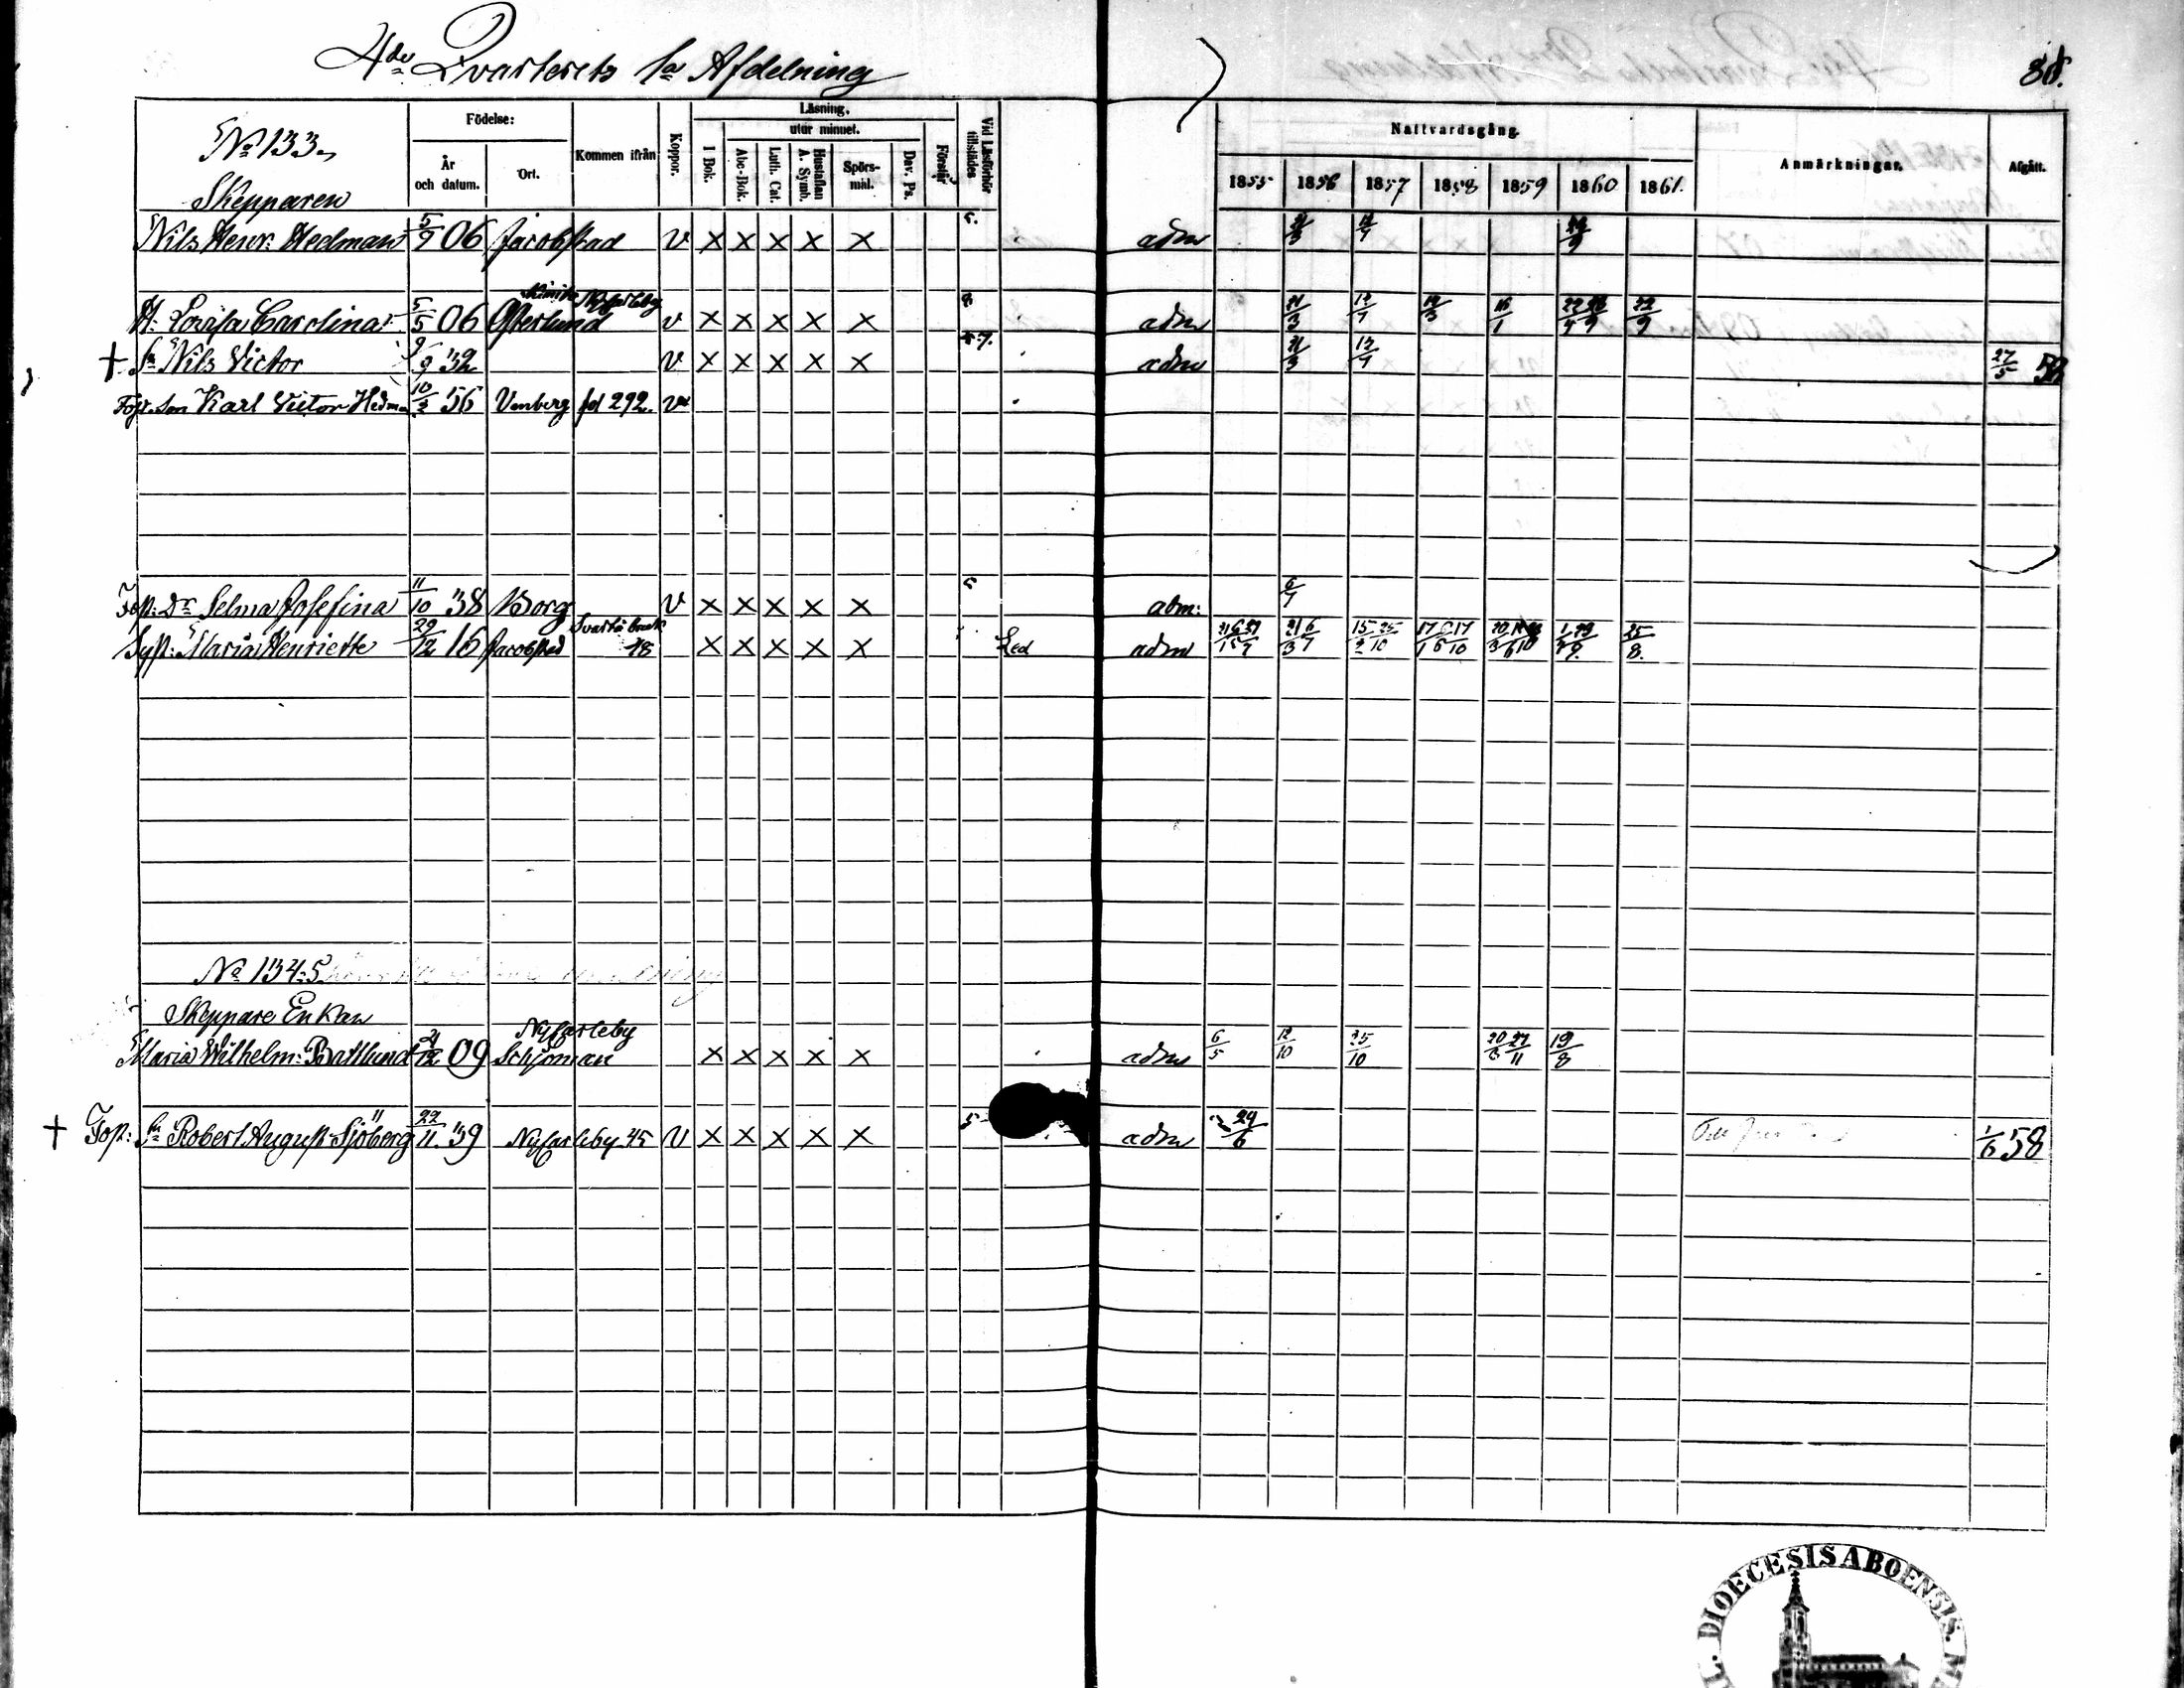 4de Qvarterets 1a Afdelning
38.
No 133.
Skepparen
Födelse:
År och datum.
Ort.
Kommen ifrån
Koppor.
Läsning.
I Bok.
utur minnet.
Abc-Bok.
Luth. Cat.
Hustaflan A. Symb.
Spörs-mål.
Dav. Ps.
Förstår
Vid Läsförhör tillstädes
Nattvardsgång.
1855 1856 1857 1858 1859 1860 1861.
Anmärkningar.
Afgått.
Nils Henr: Hedman 5/9 06 Jacobstad v × × × × × adm 21/3 12/7
Nyfarleby
H: Lovisa Carolina 5/5 06 Österlund v × × × × × adm 21/3 12/7 16/1 22/9
† Sn Nils Victor 9/9 32 v × × × × × adm 21/3 12/7 27/5
Fost. son Karl Victor Hedman 10/2 56 Venberg fol 292. v
Fost: Dr Selma Josefina 11/10 38 Borg v × × × × × adm: 6/7
Syst: Maria Henriette 29/12 16 Jacobstad Svartå bruk 48 × × × × × Led adm 25/8.
No 134:5
Skeppare Enkan
Nyfarleby
Maria Wilhelm: Battlund 21/12 09 Schjoman × × × × × adm 6/5 12/10 25/10 19/8
† Fost: Sn Robert August Sjöberg 22/11 39 Nyfarleby 45 v × × × × × 5 adm 29/6 1/6 58
DIOECESIS ABOENSIS.